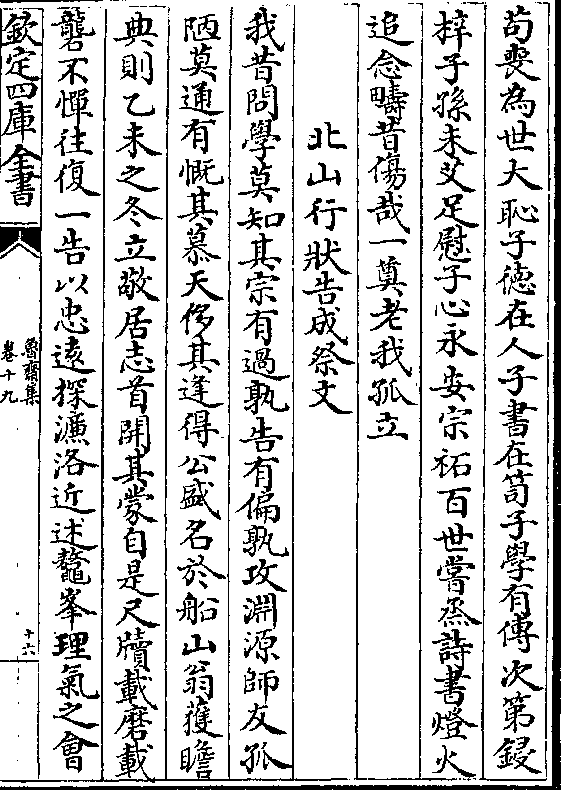 苟喪為世大恥子德在人子書在笥子學有傳次第鋟
梓子孫未艾足慰子心永安宗祏百世嘗烝詩書燈火
追念疇昔傷哉一奠老我孤立
北山行狀告成祭文
我昔問學莫知其宗有過孰告有偏孰攻淵源師友孤
陋莫通有慨其慕天侈其逢得公盛名於船山翁獲瞻
典則乙未之冬立敬居志首開其蒙自是尺牘載磨載
礱不憚往復一告以忠遠探濂洛近述鼇峯理氣之會
欽定四庫全書
魯齋集
卷十九
十六